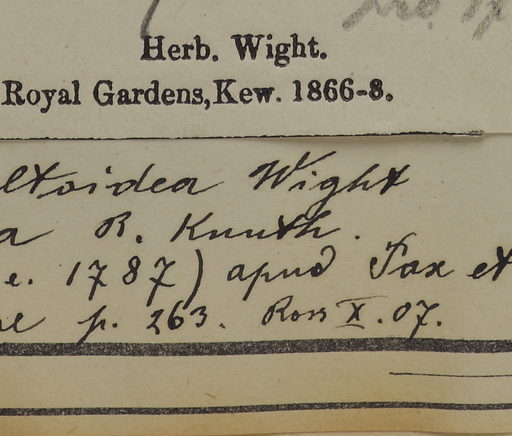 Herb. Wight.
Royal Gardens, Kew. 1866-8.
ltoidea Wight
a R. Knuth.
e. 1787) apud Pax et
p. 263. Ross X. 07.